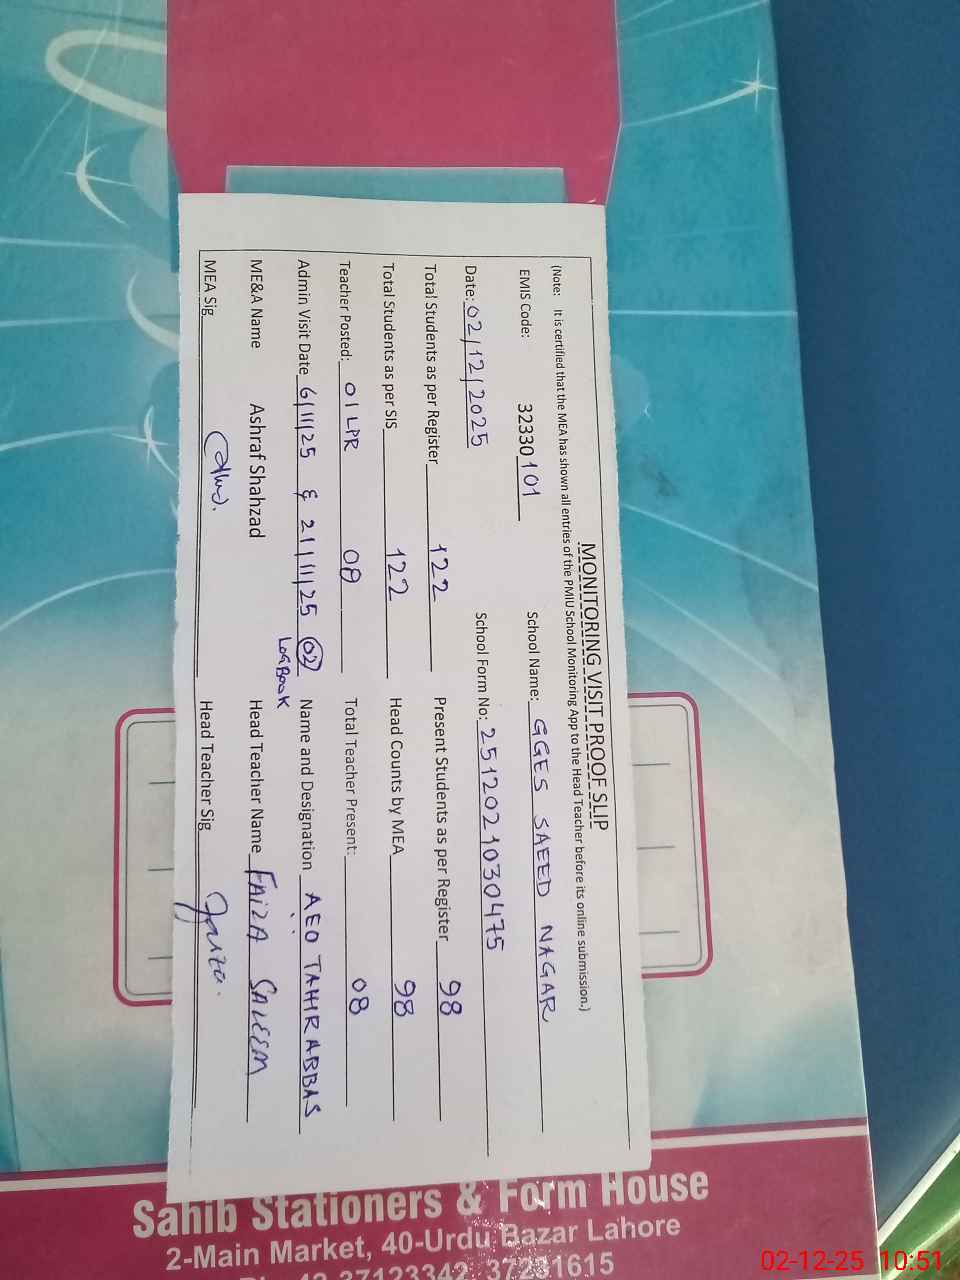 MONITORING VISIT PROOF SLIP
(Note: It is certified that the MEA has shown all entries of the PMIU School Monitoring App to the Head Teacher before its online submission.)
EMIS Code: 32330101 School Name: GGES SAEED NAGAR
Date: 02/12/2025 School Form No: 2512021030475
Total Students as per Register 122 Present Students as per Register 98
Total Students as per SIS 122 Head Counts by MEA 98
Teacher Posted: 01 LPR 08 Total Teacher Present: 08
Admin Visit Date 6/11/25 & 21/11/25 02 Name and Designation AEO TAHIR ABBAS
LOGBOOK
ME&A Name Ashraf Shahzad Head Teacher Name FAIZA SALEEM
MEA Sig Head Teacher Sig Faiza.
Sahib Stationers & Form House
2-Main Market, 40-Urdu Bazar Lahore
37123342, 37231615
02-12-25 10:51